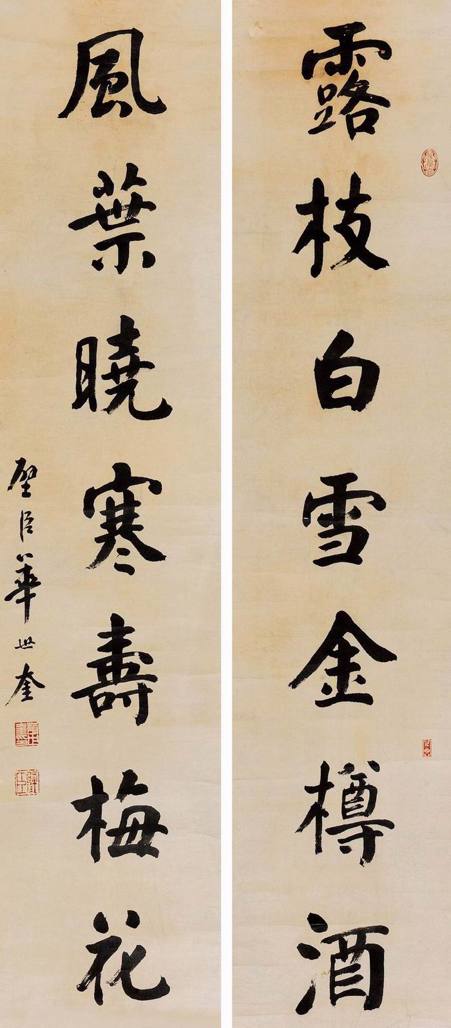 露枝白雪金樽酒
風葉曉寒壽梅花
壁臣華世奎